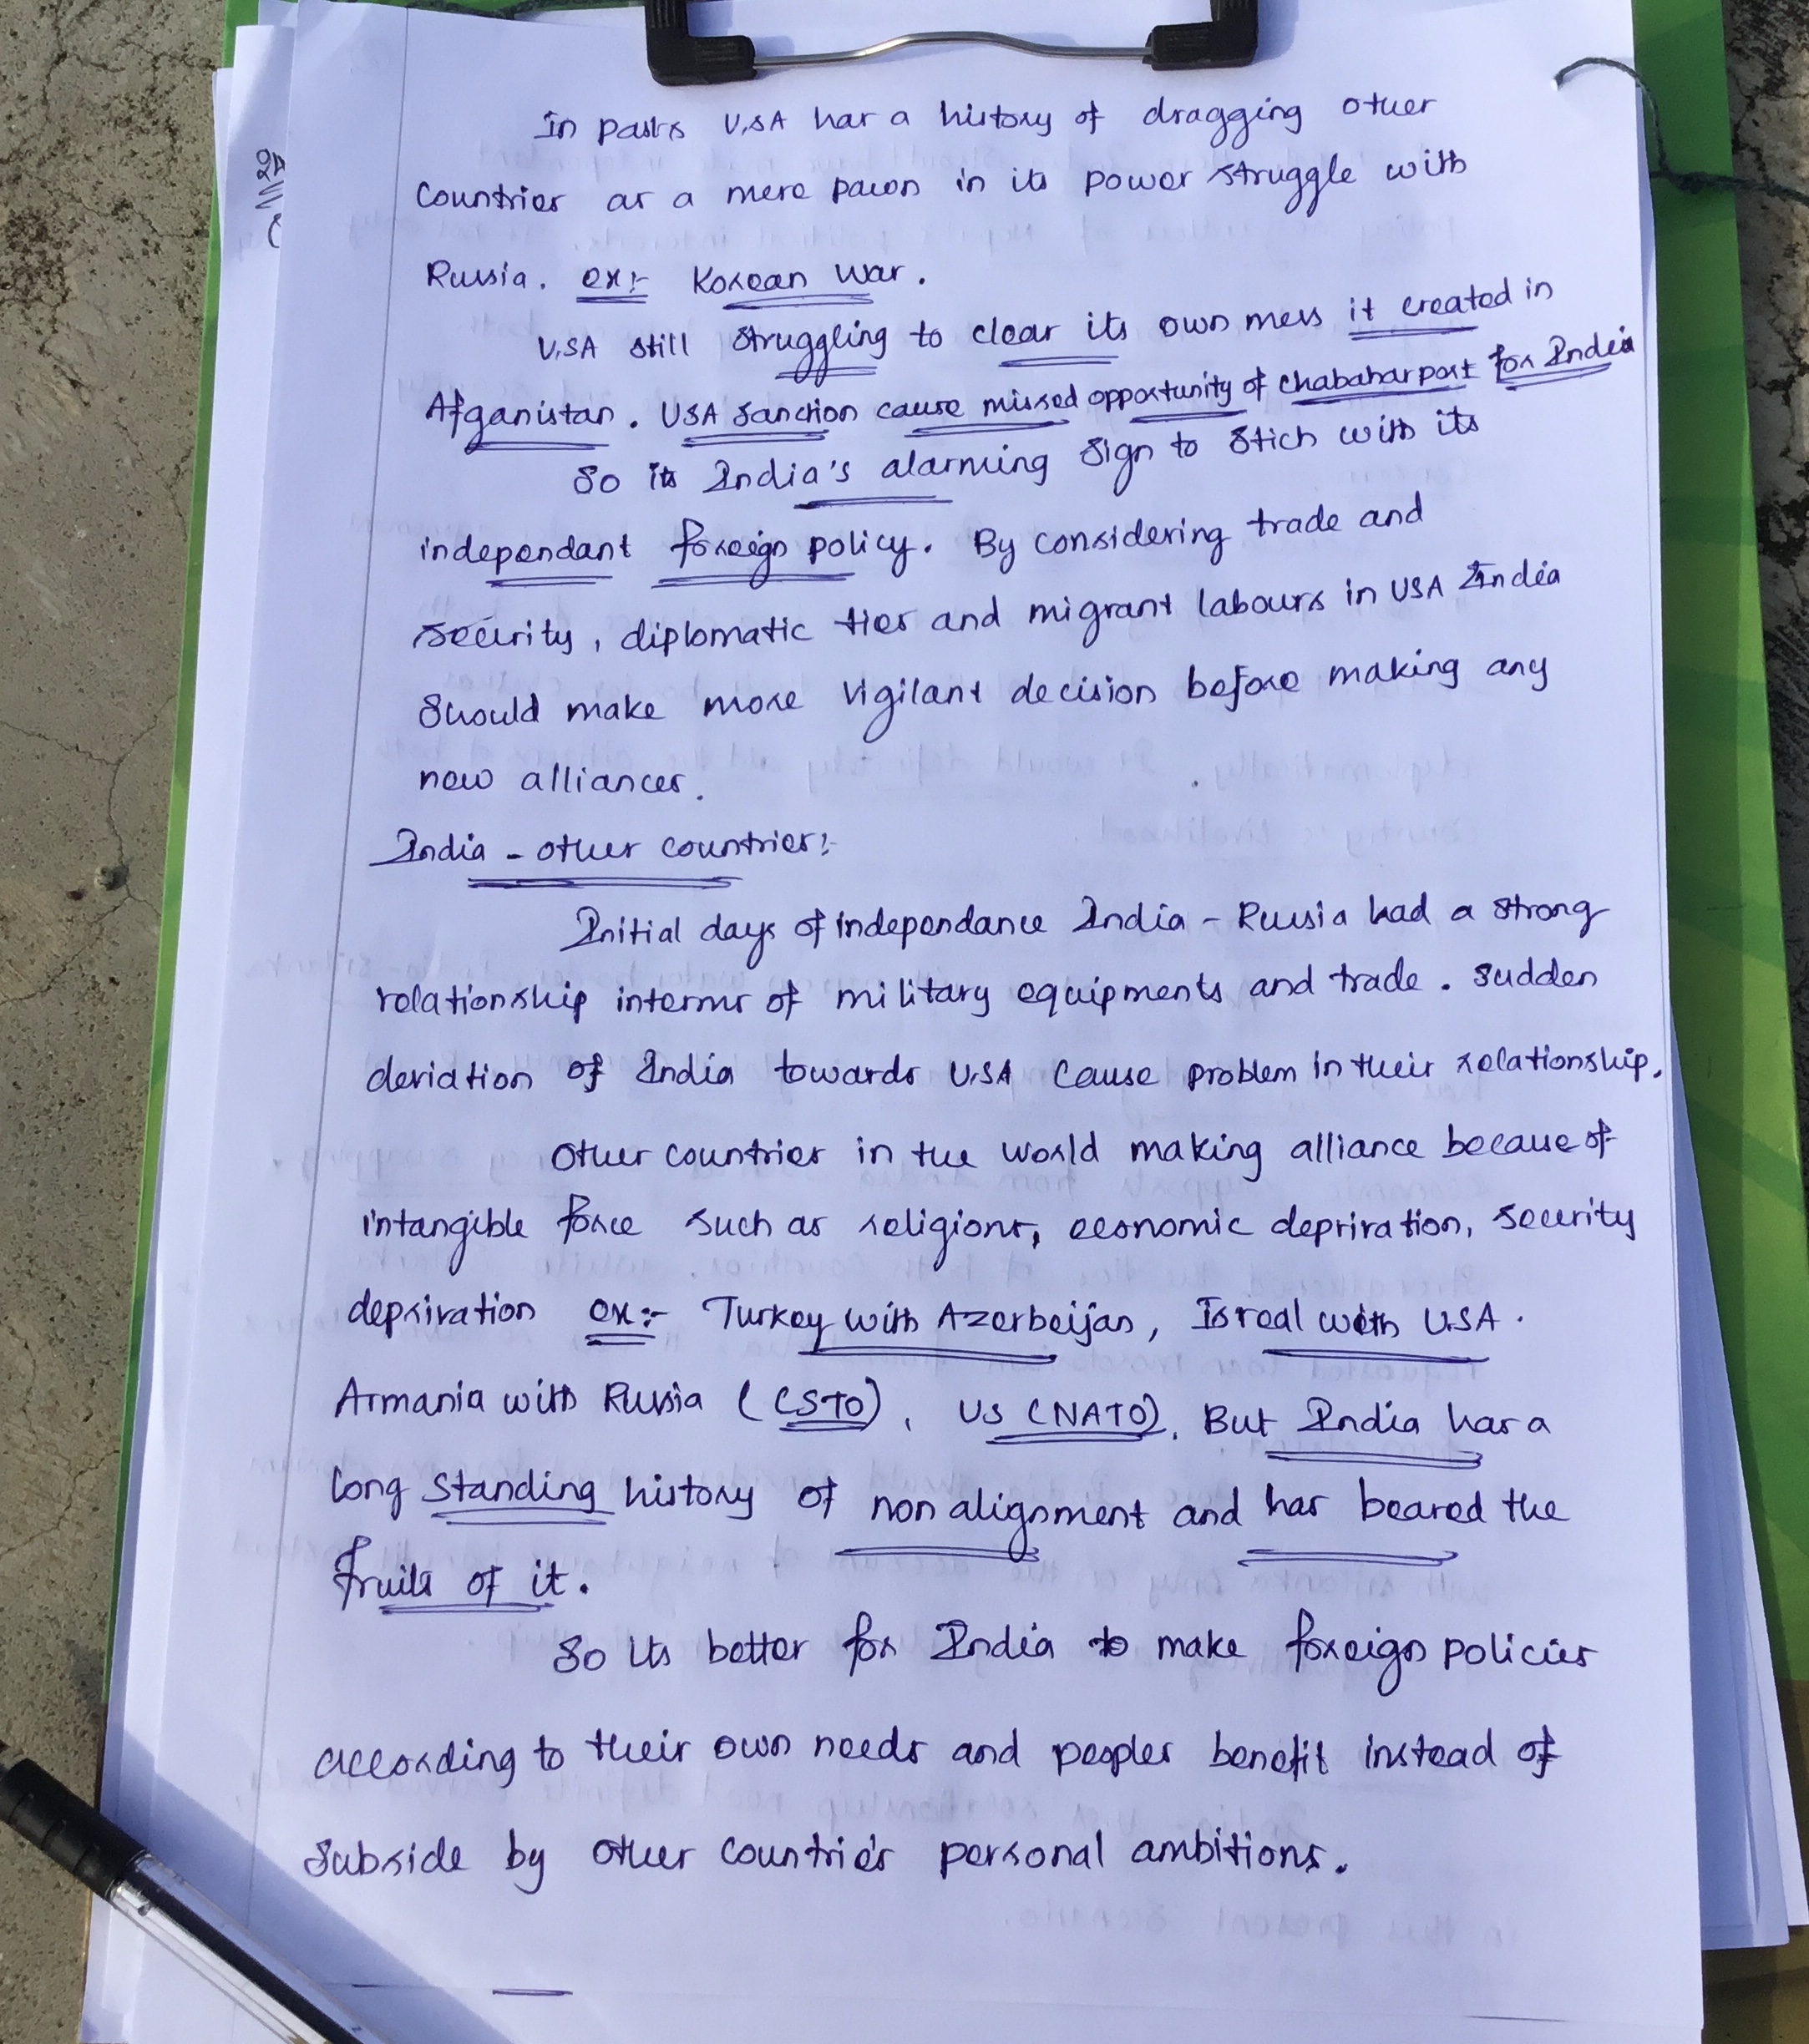 In pasts U.S.A has a history of dragging other
Countries as a mere pawn in its power struggle with
Russia. ex:- Korean war.
U.SA still struggling to clear its own mess it created in
Afganistan. USA sanction cause missed opportunity of chabahar port for India
So its India's alarming sign to stich with its
independant foreign policy. By considering trade and
security, diplomatic ties and migrant labours in USA India
should make more vigilant decision before making any
new alliances.
India - other countries:-
Initial days of independance India - Russia had a strong
relationship interms of military equipments and trade. Sudden
deviation of India towards U.SA cause problem in their relationship.
Other countries in the world making alliance because of
intangible force such as religions, economic deprivation, security
deprivation ex:- Turkey with Azerbeijan, Isreal with U.SA.
Armania with Russia (CSTO), US (NATO). But India has a
long standing history of non alignment and has beared the
fruits of it.
So its better for India to make foreign policies
according to their own needs and peoples benefit instead of
subside by other countries personal ambitions.